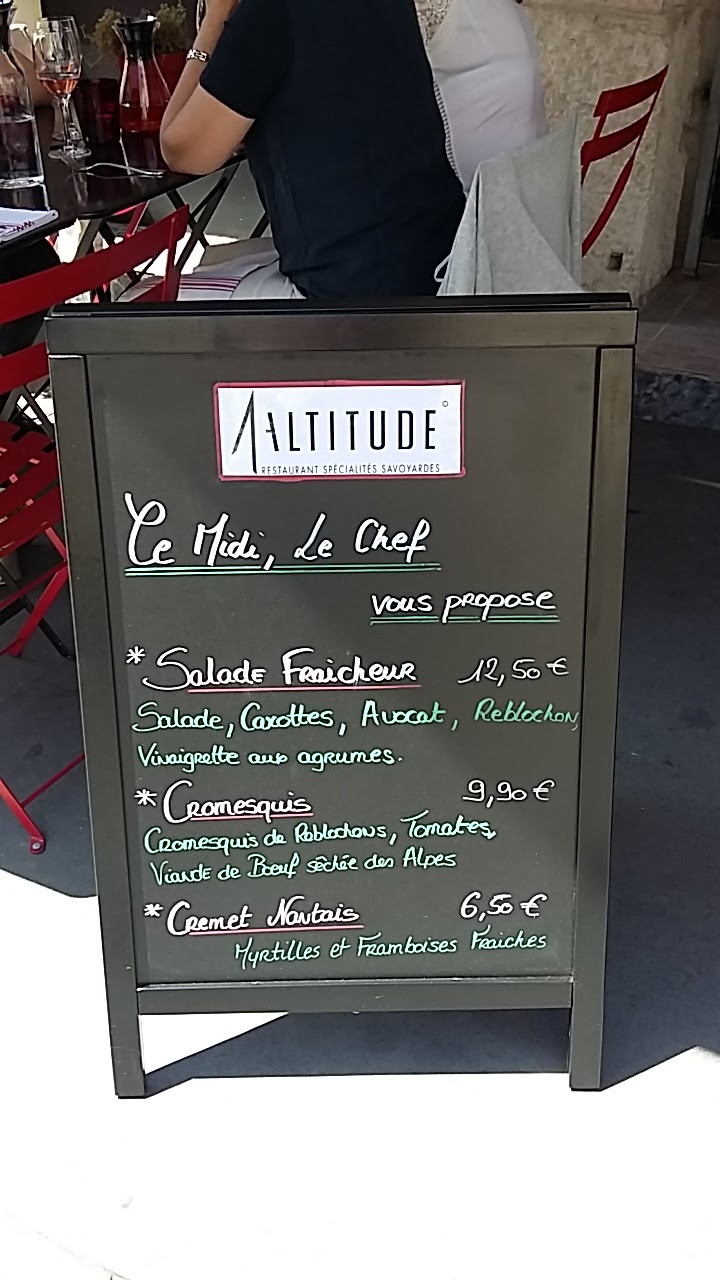 ALTITUDE
RESTAURANT SPÉCIALITÉS SAVOYARDES
Ce Midi, Le Chef
vous propose
* Salade Fraicheur 12,50 €
Salade, Carottes, Avocat, Reblochon,
Vinaigrette aux agrumes.
* Cromesquis 9,90 €
Cromesquis de Reblochons, Tomates,
Viande de Bœuf séchée des Alpes
* Cremet Nantais 6,50 €
Myrtilles et Framboises Fraiches